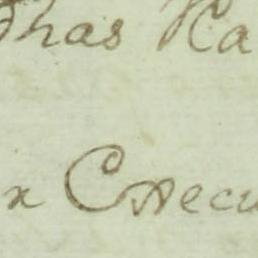 has Ha
x Execu